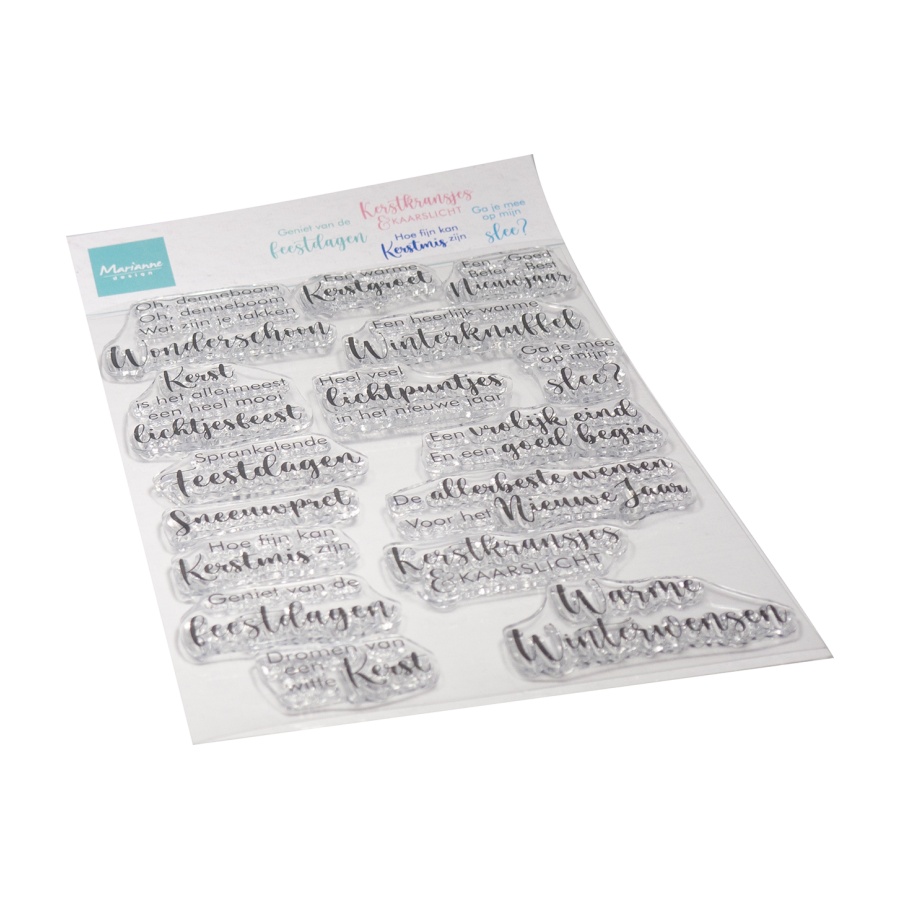 Marianne
design
Geniet van de
feestdagen
Kerstkransjes
& KAARSLICHT
Hoe fijn kan
Kerstmis zijn
Ga je mee
op mijn
slee?
Oh, denneboom
Oh, denneboom
Wat zijn je takken
Wonderschoon
Een warme
Kerstgroet
Een Goed
Beter Best
Nieuwjaar
Een heerlijk warme
Winterknuffel
Kerst
is het allermeest
een heel mooi
lichtjesfeest
Heel veel
lichtpuntjes
in het nieuwe jaar
Ga je mee
op mijn
slee?
Een vrolijk eind
En een goed begin
Sprankelende
Feestdagen
De allerbeste wensen
Voor het Nieuwe Jaar
Sneeuwpret
Hoe fijn kan
Kerstmis zijn
Kerstkransjes
& KAARSLICHT
Geniet van de
feestdagen
Warme
Winterwensen
Dromen van
een
witte Kerst